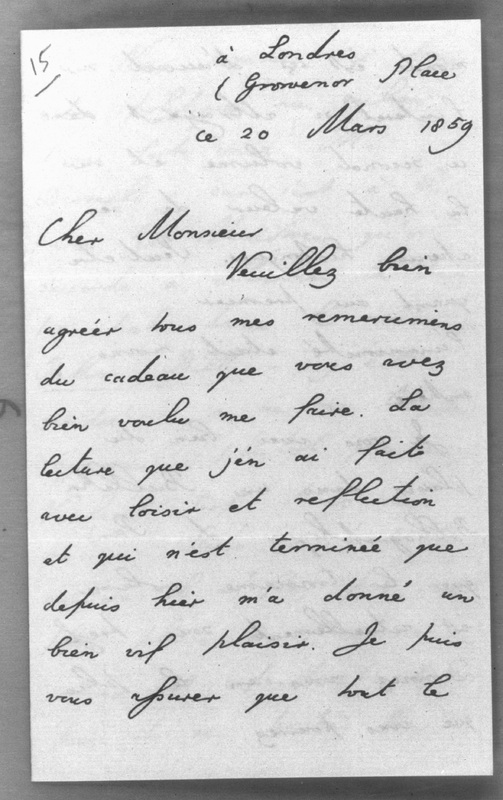 15
à Londres
( Grosvenor Place
ce 20 Mars 1859
Cher Monsieur
Veuillez bien
agréer tous mes remercimens
du cadeau que vous avez
bien voulu me faire. La
lecture que j'én ai faite
avec loisir et reflection
et qui n'est terminée que
depuis hier m'a donné un
bien vif plaisir. Je puis
vous assurer que tout le